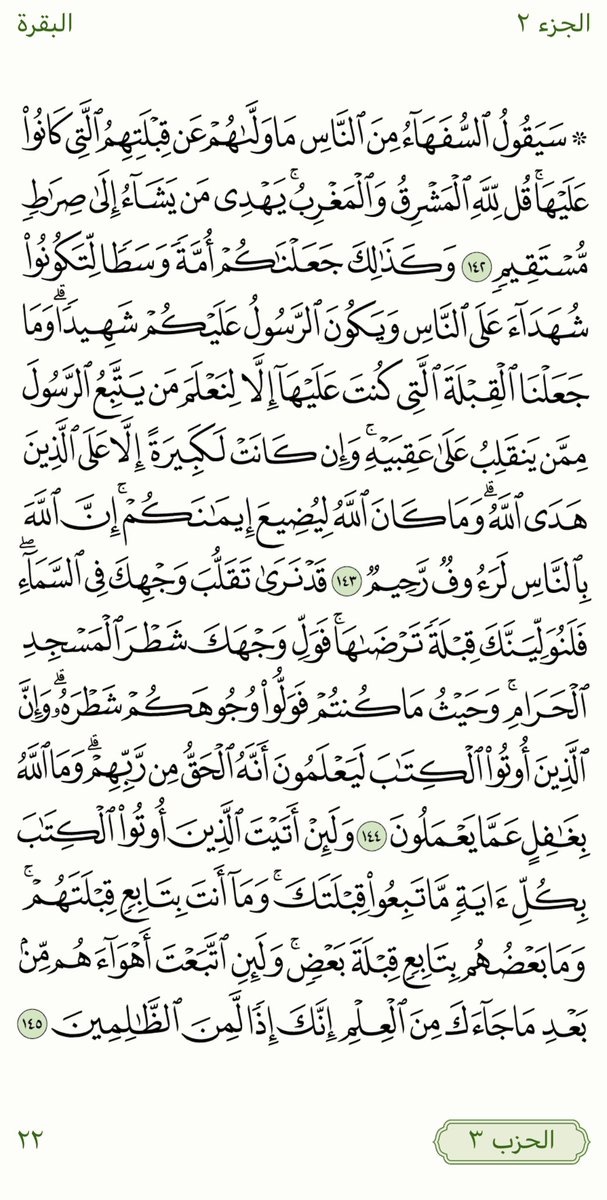 الجزء ٢
البقرة
۞ سَيَقُولُ ٱلسُّفَهَآءُ مِنَ ٱلنَّاسِ مَا وَلَّىٰهُمْ عَن قِبْلَتِهِمُ ٱلَّتِى كَانُوا۟
عَلَيْهَا ۚ قُل لِّلَّهِ ٱلْمَشْرِقُ وَٱلْمَغْرِبُ ۚ يَهْدِى مَن يَشَآءُ إِلَىٰ صِرَٰطٍ
مُّسْتَقِيمٍ ١٤٢ وَكَذَٰلِكَ جَعَلْنَٰكُمْ أُمَّةً وَسَطًا لِّتَكُونُوا۟
شُهَدَآءَ عَلَى ٱلنَّاسِ وَيَكُونَ ٱلرَّسُولُ عَلَيْكُمْ شَهِيدًا ۗ وَمَا
جَعَلْنَا ٱلْقِبْلَةَ ٱلَّتِى كُنتَ عَلَيْهَآ إِلَّا لِنَعْلَمَ مَن يَتَّبِعُ ٱلرَّسُولَ
مِمَّن يَنقَلِبُ عَلَىٰ عَقِبَيْهِ ۚ وَإِن كَانَتْ لَكَبِيرَةً إِلَّا عَلَى ٱلَّذِينَ
هَدَى ٱللَّهُ ۗ وَمَا كَانَ ٱللَّهُ لِيُضِيعَ إِيمَٰنَكُمْ ۚ إِنَّ ٱللَّهَ
بِٱلنَّاسِ لَرَءُوفٌ رَّحِيمٌ ١٤٣ قَدْ نَرَىٰ تَقَلُّبَ وَجْهِكَ فِى ٱلسَّمَآءِ ۖ
فَلَنُوَلِّيَنَّكَ قِبْلَةً تَرْضَىٰهَا ۚ فَوَلِّ وَجْهَكَ شَطْرَ ٱلْمَسْجِدِ
ٱلْحَرَامِ ۚ وَحَيْثُ مَا كُنتُمْ فَوَلُّوا۟ وُجُوهَكُمْ شَطْرَهُۥ ۗ وَإِنَّ
ٱلَّذِينَ أُوتُوا۟ ٱلْكِتَٰبَ لَيَعْلَمُونَ أَنَّهُ ٱلْحَقُّ مِن رَّبِّهِمْ ۗ وَمَا ٱللَّهُ
بِغَٰفِلٍ عَمَّا يَعْمَلُونَ ١٤٤ وَلَئِنْ أَتَيْتَ ٱلَّذِينَ أُوتُوا۟ ٱلْكِتَٰبَ
بِكُلِّ ءَايَةٍ مَّا تَبِعُوا۟ قِبْلَتَكَ ۚ وَمَآ أَنتَ بِتَابِعٍ قِبْلَتَهُمْ ۚ
وَمَا بَعْضُهُم بِتَابِعٍ قِبْلَةَ بَعْضٍ ۚ وَلَئِنِ ٱتَّبَعْتَ أَهْوَآءَهُم مِّنۢ
بَعْدِ مَا جَآءَكَ مِنَ ٱلْعِلْمِ إِنَّكَ إِذًا لَّمِنَ ٱلظَّٰلِمِينَ ١٤٥
الحزب ٣
٢٢